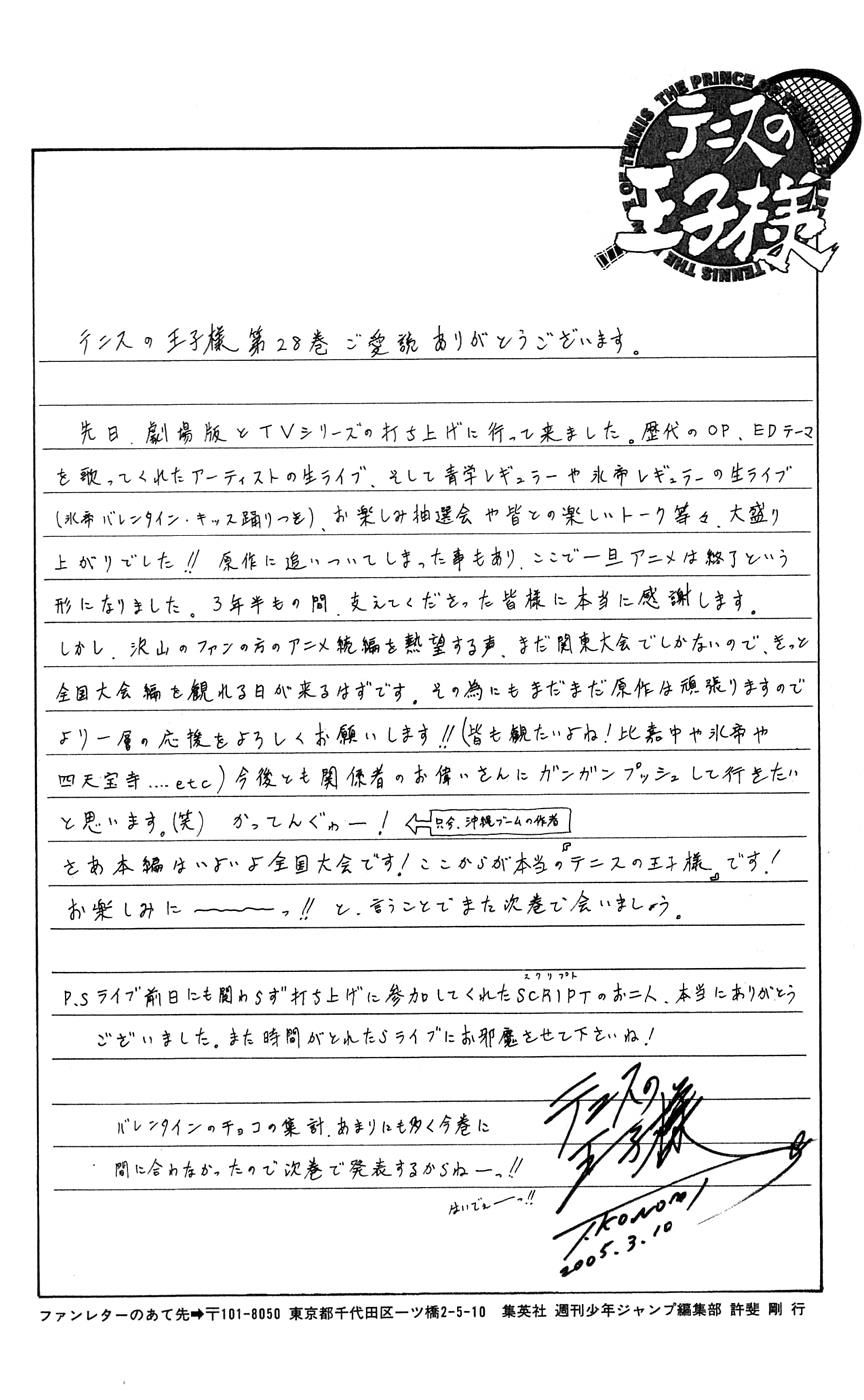 THE PRINCE OF TENNIS
テニスの
王子様
テニスの王子様 第28巻 ご愛読 ありがとうございます。
先日、劇場版とTVシリーズの打ち上げに行って来ました。歴代のOP、EDテーマ
を歌ってくれたアーティストの生ライブ、そして青学レギュラーや氷帝レギュラーの生ライブ
(氷帝バレンタイン・キッス踊りつき)、お楽しみ抽選会や皆との楽しいトーク等々、大盛り
上がりでした!! 原作に追いついてしまった事もあり、ここで一旦アニメは終了という
形になりました。3年半もの間、支えてくださった皆様に本当に感謝します。
しかし、沢山のファンの方のアニメ続編を熱望する声、まだ関東大会でしかないので、きっと
全国大会編を観れる日が来るはずです。その為にもまだまだ原作は頑張りますので
より一層の応援をよろしくお願いします!!(皆も観たいよね!比嘉中や氷帝や
四天宝寺....etc)今後とも関係者のお偉いさんにガンガンプッシュして行きたい
と思います。(笑) かってんぐゎー! ⇦只今、沖縄ブームの作者
さあ本編はいよいよ全国大会です!ここからが本当の『テニスの王子様』です!
お楽しみに〜〜〜っ!! と、言うことでまた次巻で会いましょう。
P.Sライブ前日にも関わらず打ち上げに参加してくれたSCRIPTのお二人、本当にありがとう
スクリプト
ございました。また時間がとれたらライブにお邪魔させて下さいね!
バレンタインのチョコの集計、あまりにも多く今巻に
間に合わなかったので次巻で発表するからねーっ!!
はいでぇーっ!!
テニスの
王子様
T.KONOMI
2005.3.10
ファンレターのあて先➡〒101-8050 東京都千代田区一ツ橋2-5-10 集英社 週刊少年ジャンプ編集部 許斐 剛 行